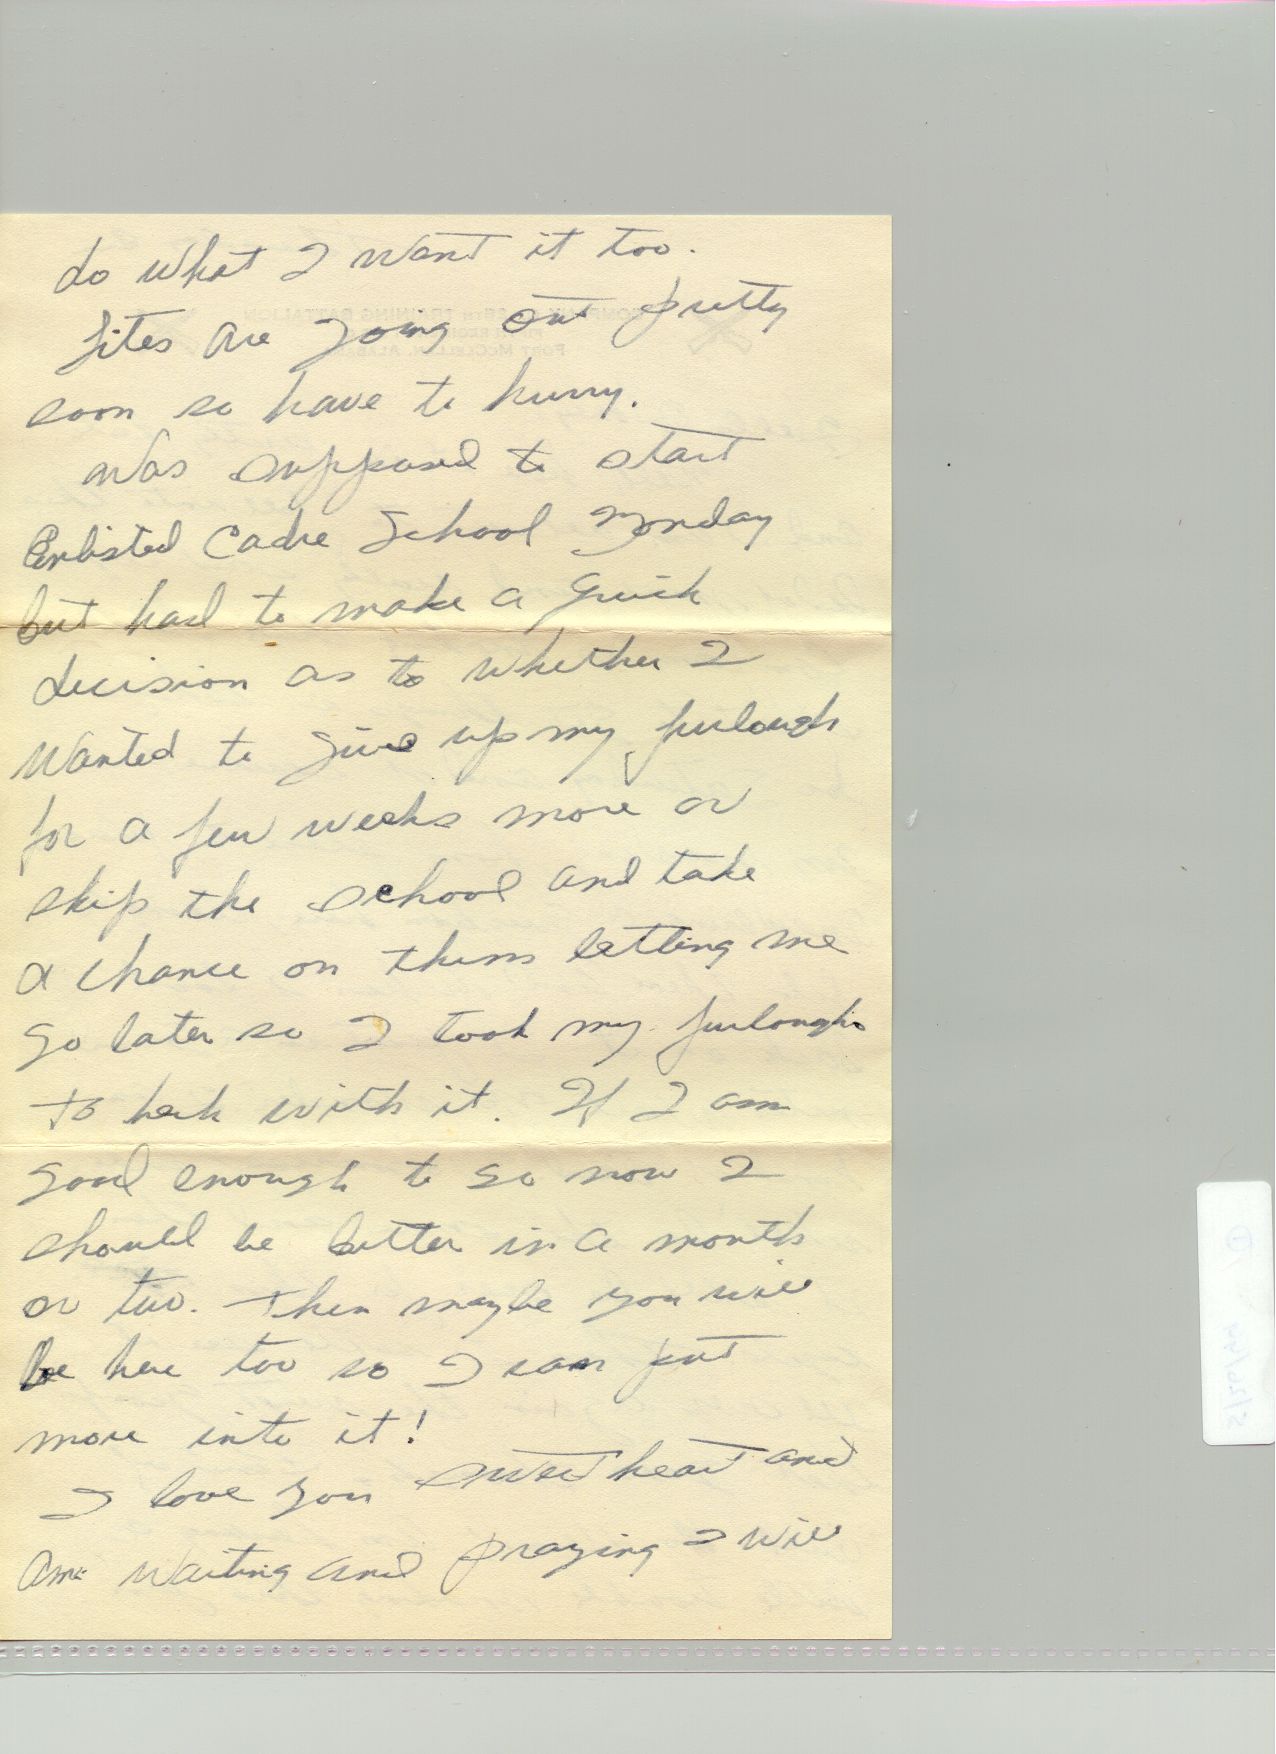 do what I want it too.
Lites are going out pretty
soon so have to hurry.
Was supposed to start
Enlisted Cadre School Monday
but had to make a quick
decision as to whether I
wanted to give up my furlough
for a few weeks more or
skip the school and take
a chance on them letting me
go later so I took my furlough.
To heck with it. If I am
good enough to go now I
should be better in a month
or two. Then maybe you will
be here too so I can put
more into it!
I love you sweetheart and
am waiting and praying I will
5/26/44